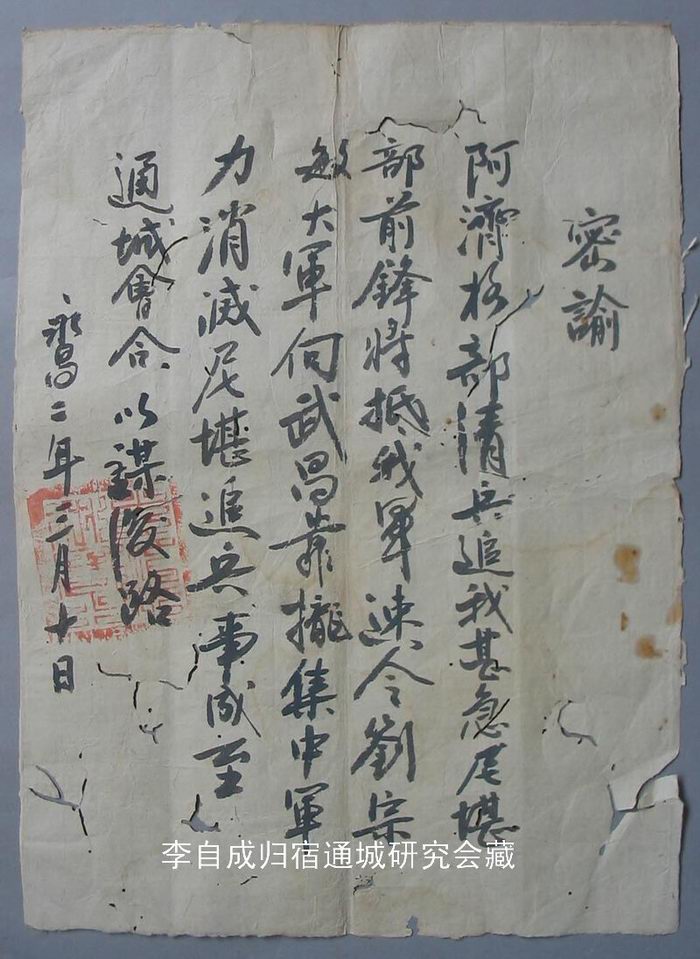 密諭
阿濟格部清兵追我甚急尼堪
部前鋒将抵我軍速令劉宗
敏大軍向武昌靠攏集中軍
力消滅尼堪追兵事成至
通城會合以謀後路
永昌二年三月十日
李自成归宿通城研究会藏